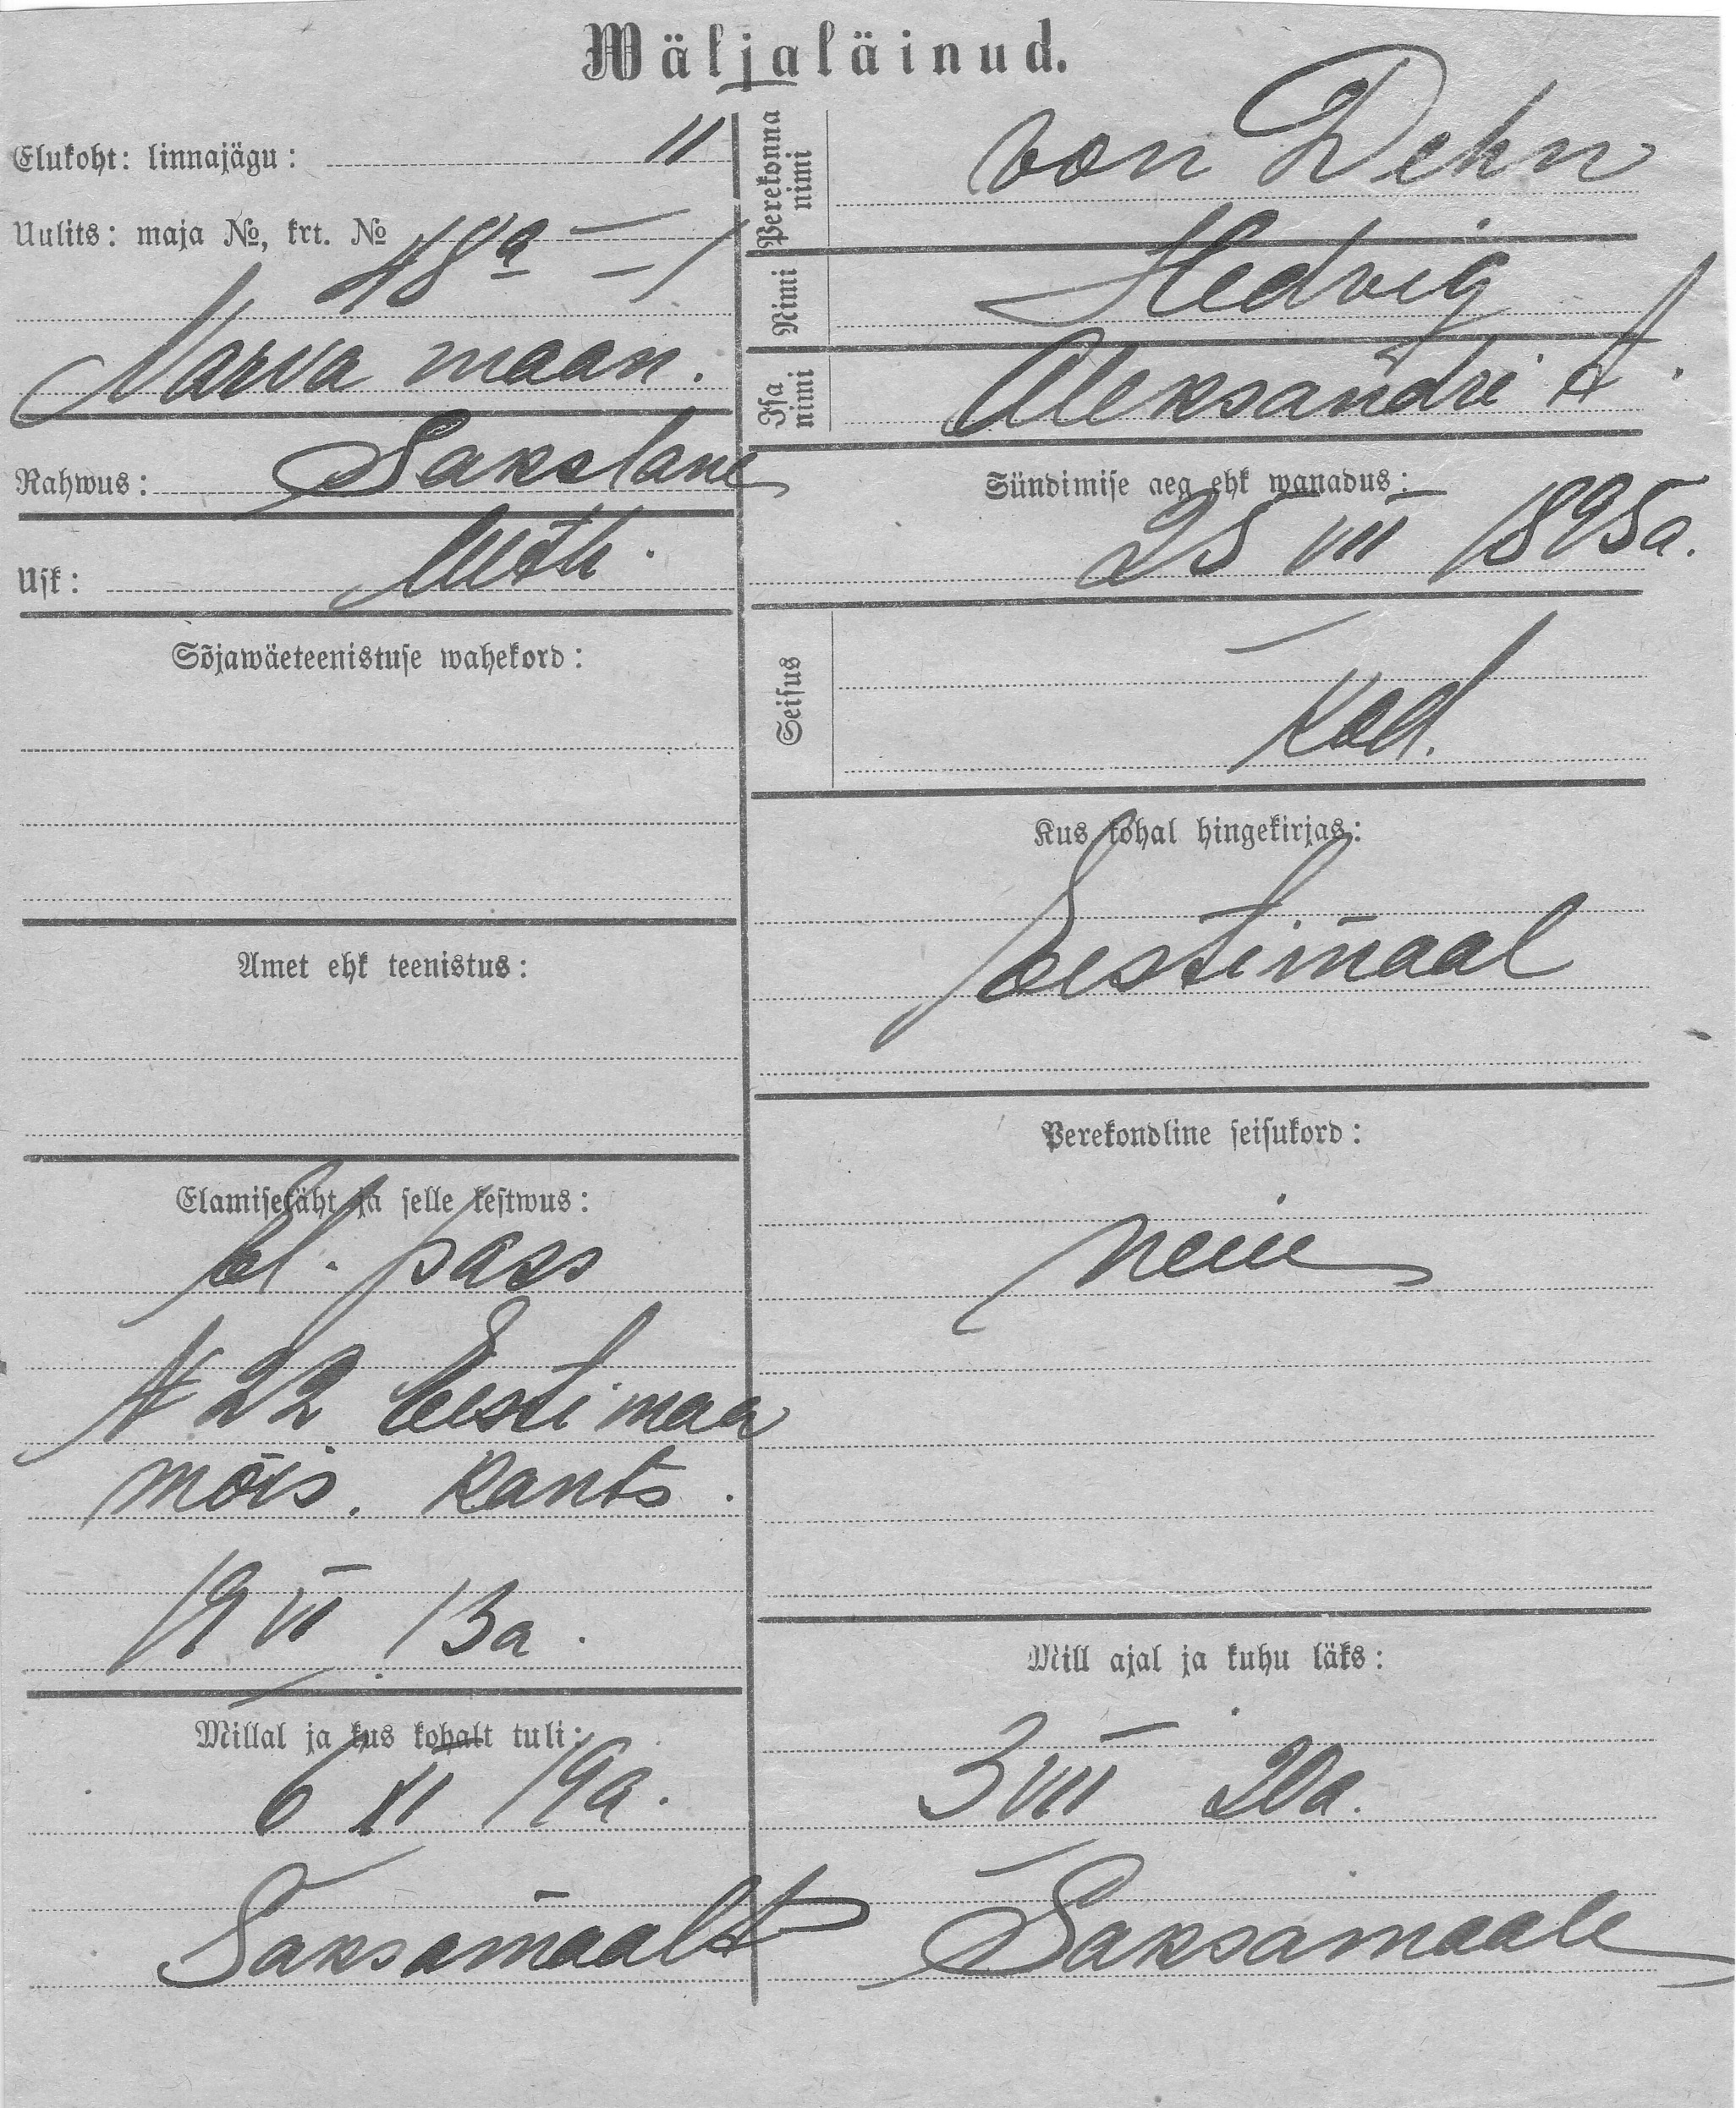 Wäljaläinud.
Elukoht: linnajägu: II
Uulits: maja №, krt. № 48a — 1
Narva maan.
Rahwus: Sakslane
Usk: luth.
Sõjawäeteenistuse wahekord:
Amet ehk teenistus:
Elamisetäht ja selle kestwus:
el. pass
№ 22 Eestimaa
mõis. kants.
19 VI 13a.
Millal ja kus kohalt tuli:
6 XI 19a.
Saksamaalt
Perekonna nimi von Dehn
Nimi Hedvig
Isa nimi Aleksandri t.
Sündimise aeg ehk wanadus:
25 VII 1895a.
Seisus
Kod.
Kus kohal hingekirjas:
Eestimaal
Perekondline seisukord:
neiu
Mill ajal ja kuhu läks:
3 VIII 20a.
Saksamaale